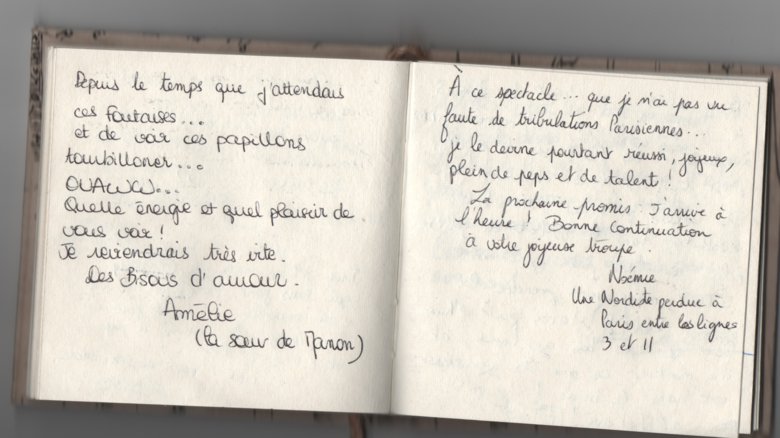 Depuis le temps que j'attendais
ces foutaises...
et de voir ces papillons
tourbilloner...
OUAWW...
Quelle énergie et quel plaisir de
vous voir !
Je reviendrais très vite.
Des Bisous d'amour.
Amélie
(la sœur de Manon)
À ce spectacle... que je n'ai pas vu
faute de tribulations Parisiennes...
je le devine pourtant réussi, joyeux,
plein de peps et de talent !
La prochaine promis j'arrive à
l'heure ! Bonne continuation
à votre joyeuse troupe.
Noémie
Une Nordiste perdue à
Paris entre les lignes
3 et 11